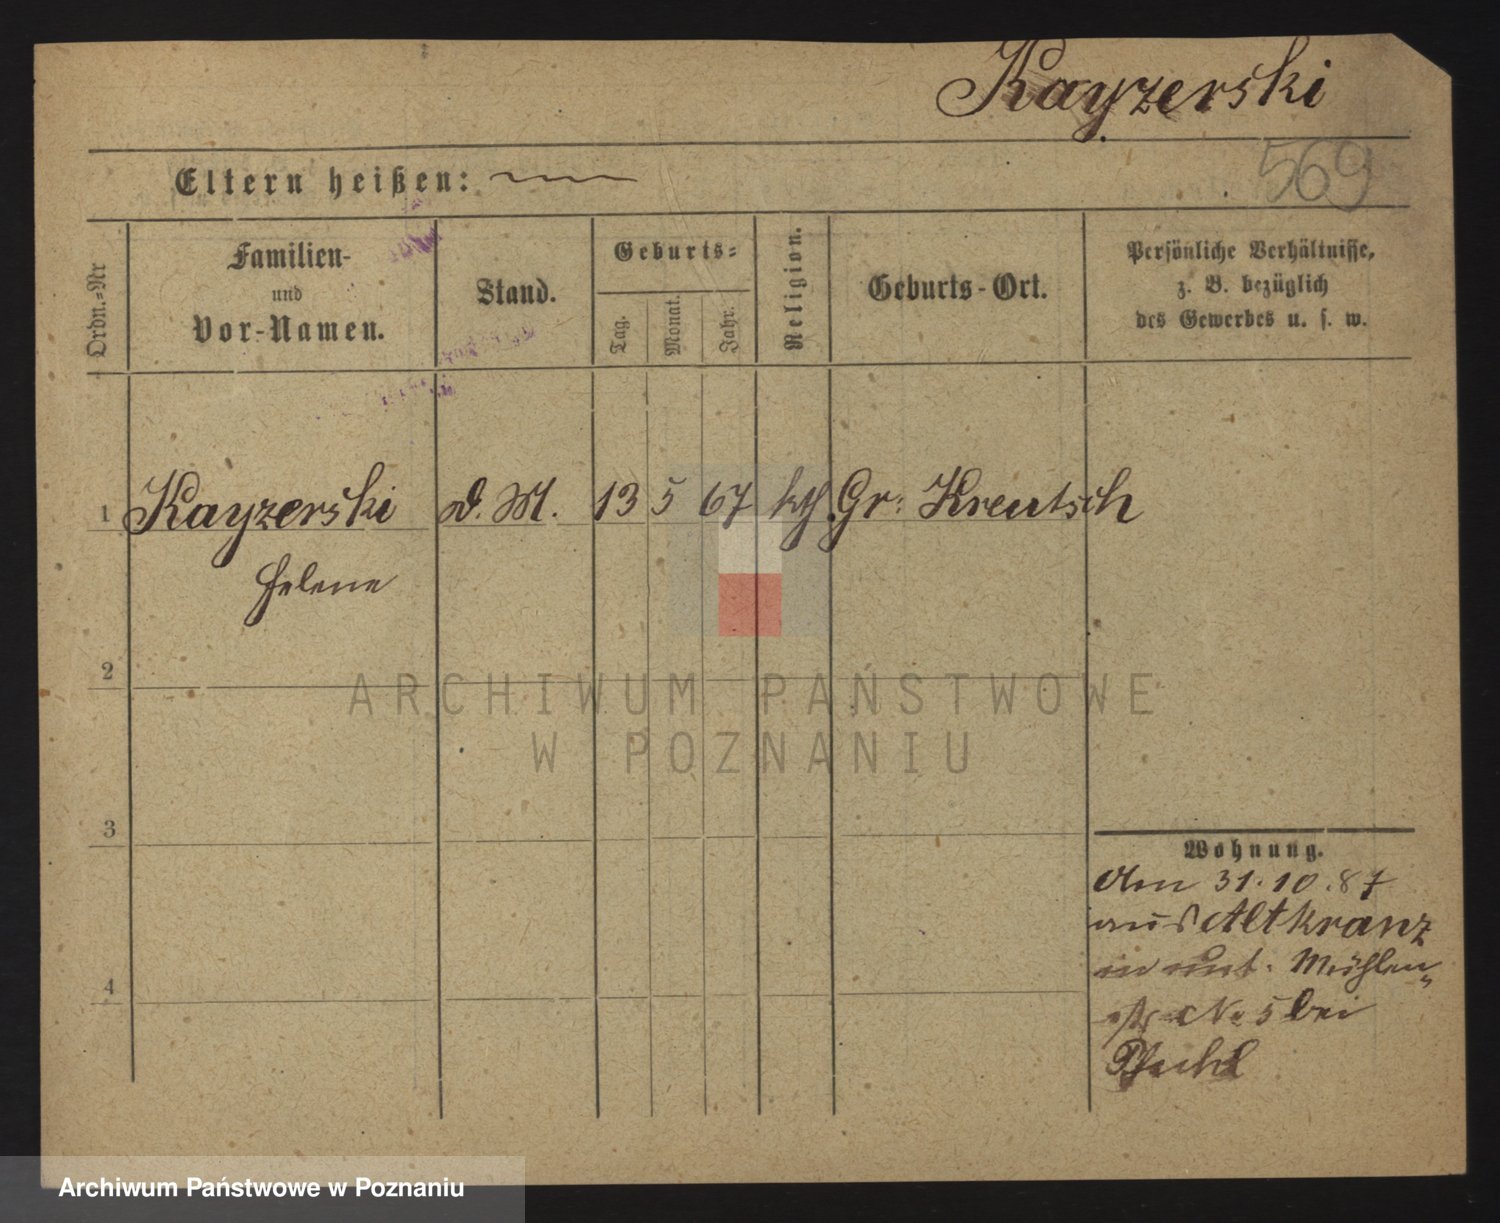 Kayzerski
569
Eltern heißen:
Ordn.=Nr
Familien-
und
Vor-Namen.
Stand.
Geburts=
Tag.
Monat.
Jahr.
Religion.
Geburts-Ort.
Persönliche Verhältnisse,
z. B. bezüglich
des Gewerbes u. s. w.
1 Kayzerski d. M. 13 5 67 kth. Gr. Kreutsch
Helene
2
3
4
Wohnung.
den 31.10.87
aus Altkranz
in unt. Mühlen„
str No 5 bei
ARCHIWUM PAŃSTWOWE
W POZNANIU
Archiwum Państwowe w Poznaniu